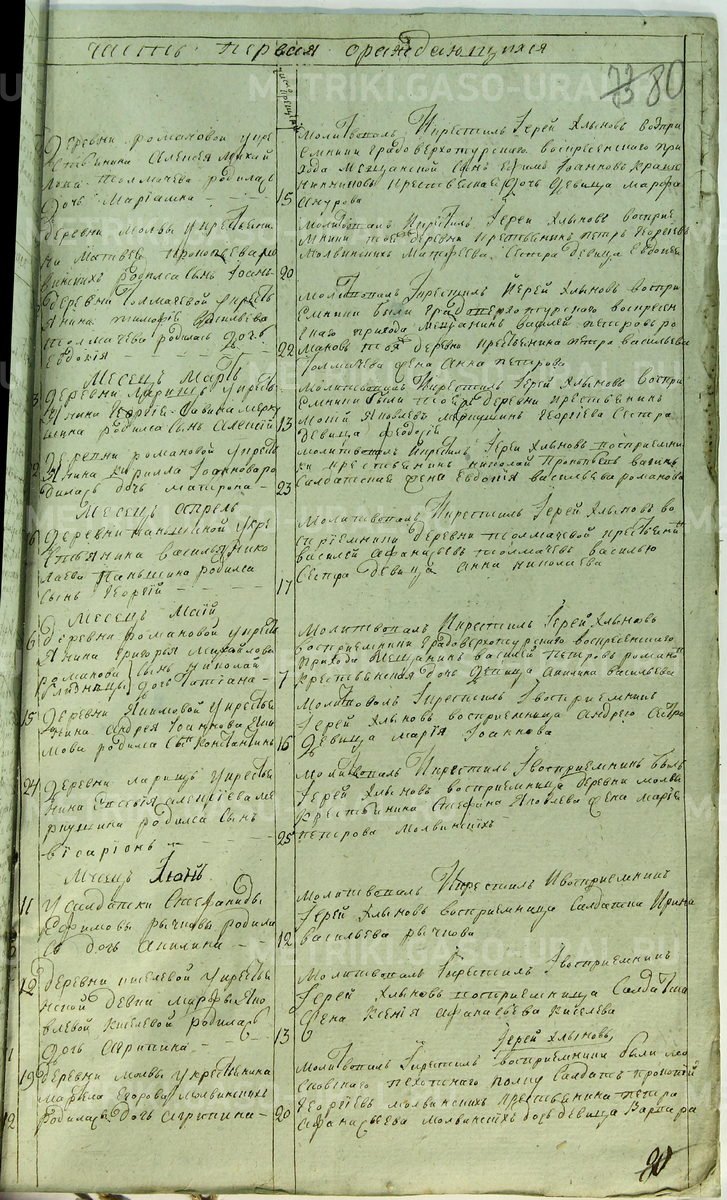 часть первая ораждающихся
73 80
Деревни романовой укре
стьянина Алексея Михай
лова толмачева родилась
дочь Мариамна
15
Молитвовалъ Икрестилъ Iерей Хлыновъ воспри
емники градоверхотурскаго воскресенского при
хода Мещанской сынъ Ефимъ Iоанновъ
дочь девица марфа
деревни Молвы укрестьяни
на Матвея Прокопьева мол
винскихъ родился сынъ Iоаннъ
20
Молитвовалъ Икрестилъ Iерей Хлыновъ восприе
мники тоя деревни крестьянинъ петръ Георгиевъ
Молвинскихъ Матфеева Сестра девица Евдокия
деревни Толмачевой укресть
янина тимофея васильева
толмачева родилась дочь
Евдокия
22
Молитвовалъ Икрестилъ Iерей Хлыновъ воспри
емники были градоверхотурского воскресен
ского прихода Мещанинъ василей петровъ ро
мановъ тоя деревни крестьянина петра васильева
Толмачева жена Анна петрова
Месецъ Мартъ
деревни Ларишъ укресть
янина Георгия Савина мерку
шина родился сынъ Алексей
13
Молитвовалъ Икрестилъ Iерей Хлыновъ воспри
емники были тоя деревни крестьянинъ
Яковлевъ меркушинъ Георгиева Сестра
девица феодосия
деревни романовой укресть
янина кирилла Iоаннова ро
дилась дочь матрона
23
Молитвовалъ Икрестилъ Iерей Хлыновъ восприемни
ки крестьянинъ николай Прокопьевъ
Салдатская жена Евдокия васильева романова
Месецъ Апрель
16
деревни паньшиной укре
стьянина василья Нико
лаева Паньшина родился
сынъ Георгий
17
Молитвовалъ Икрестилъ Iерей Хлыновъ во
сприемники деревни толмачевой крестьянинъ
василей Афанасьевъ толмачевъ василью
Сестра девица Анна николаева
Месецъ Маий
6
деревни романовой укресть
янина григорья Михайлова
романова сынъ николай
близнецы дочь татиана
7
Молитвовалъ Икрестилъ Iерей Хлыновъ
восприемники градоверхотурскаго воскресенскаго
прихода Мещанинъ василей петровъ романовъ
крестьянская дочь девица Акилина васильева
15
деревни Якимовой укрестья
нина Андрея Iоаннова Яки
мова родился сынъ константинъ
16
Молитвовалъ Икрестилъ Iвосприемникъ
Iерей Хлыновъ восприемница Андрею сестра
девица Мария Iоаннова
24
деревни ларишъ укрестья
нина Евсевия Алексиева ме
ркушина родился сынъ
висарионъ
25
Молитвовалъ Икрестилъ Iвосприемникъ былъ
Iерей Хлыновъ восприемница деревни молвы
крестьянина Стефана Яковлева жена Мария
петрова Молвинскихъ
Месецъ Iюнь
11
у салдатки Стефаниды
Ефимовы рычковы родила
сь дочь Акилина
12
Молитвовалъ Икрестилъ Ивосприемникъ
Iерей Хлыновъ восприемница Салдатка Ирина
васильева рычкова
12
деревни киселевой укрестьян
нской девки марфы Яко
влевой киселевой родилась
дочь агрипина
13
Молитвовалъ Iкрестилъ Iвосприемникъ
Iерей Хлыновъ восприемница Салдатска
жена Ксения Афанасьева Киселева
19
деревни молвы укрестьянина
Егорова Молвинскихъ
родилась дочь агрипина
20
Iерей Хлыновъ,
Молитвовалъ Iкрестилъ восприемники были мо
сковского пехотнаго полку Салдатъ прокопий
Георгиевъ молвинскихъ крестьянина петра
Афанасьева Молвинскихъ дочь девица Варвара